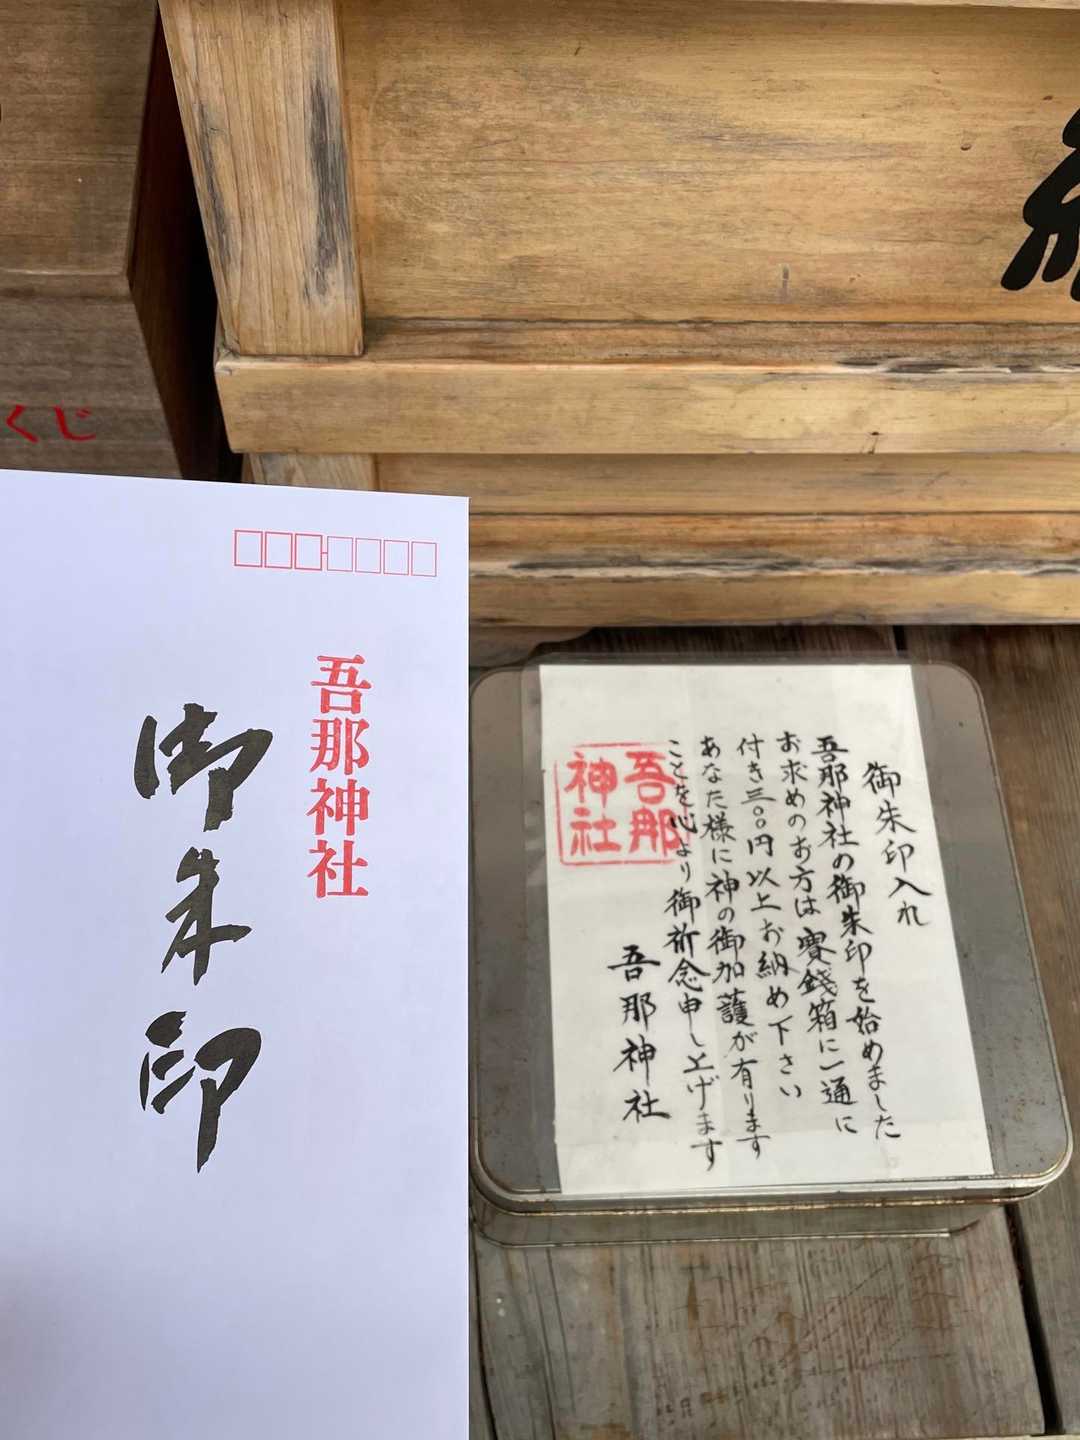 くじ
吾那神社
御朱印
御朱印入れ
吾那神社の御朱印を始めました
お求めのお方は賽錢箱に一通に
付き三〇〇円以上お納め下さい
あなた様に神の御加護が有ります
ことを心より御祈念申し上げます
吾那神社
吾那
神社